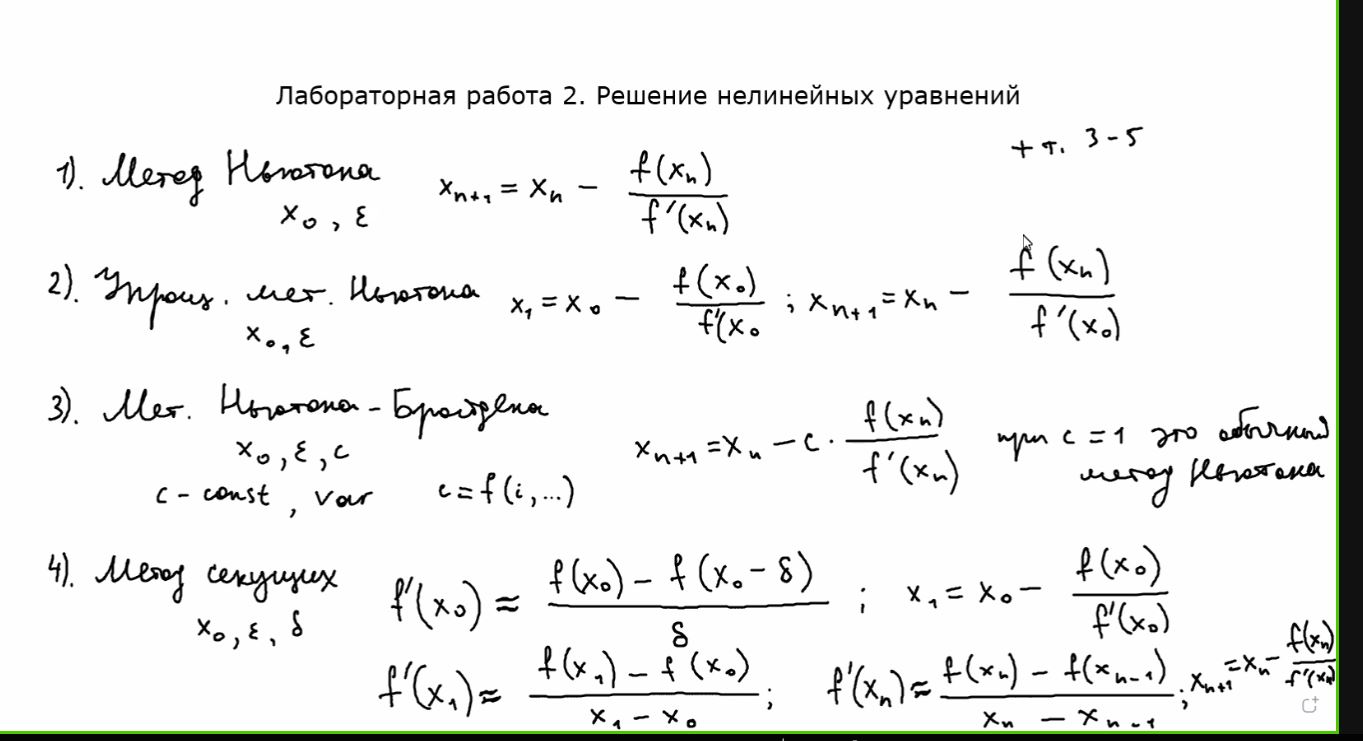 Лабораторная работа 2. Решение нелинейных уравнений
+ т. 3-5
1). Метод Ньютона xₙ₊₁ = xₙ − f(xₙ) / f'(xₙ)
x₀, ε
2). Упрощ. мет. Ньютона x₁ = x₀ − f(x₀) / f'(x₀ ; xₙ₊₁ = xₙ − f(xₙ) / f'(x₀)
x₀, ε
3). Мет. Ньютона-Бройдена xₙ₊₁ = xₙ − c · f(xₙ) / f'(xₙ) при c = 1 это обычный
x₀, ε, c метод Ньютона
c - const, var c = f(i, ...)
4). Метод секущих f'(x₀) ≈ f(x₀) − f(x₀ − δ) / δ ; x₁ = x₀ − f(x₀) / f'(x₀)
x₀, ε, δ
f'(x₁) ≈ f(x₁) − f(x₀) / x₁ − x₀ ; f'(xₙ) ≈ f(xₙ) − f(xₙ₋₁) / xₙ − xₙ₋₁ ; xₙ₊₁ = xₙ − f(xₙ) / f'(xₙ)